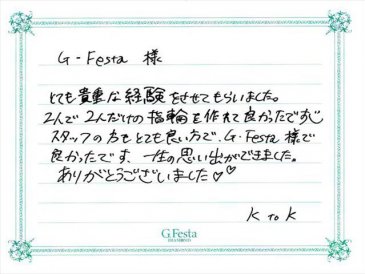 G-Festa 様
とても貴重な経験をさせてもらいました。
2人で2人だけの指輪を作れて良かったです
スタッフの方もとても良い方で、G-Festa 様で
良かったです、一生の思い出ができました。
ありがとうございました♡♡
K to K
G.Festa